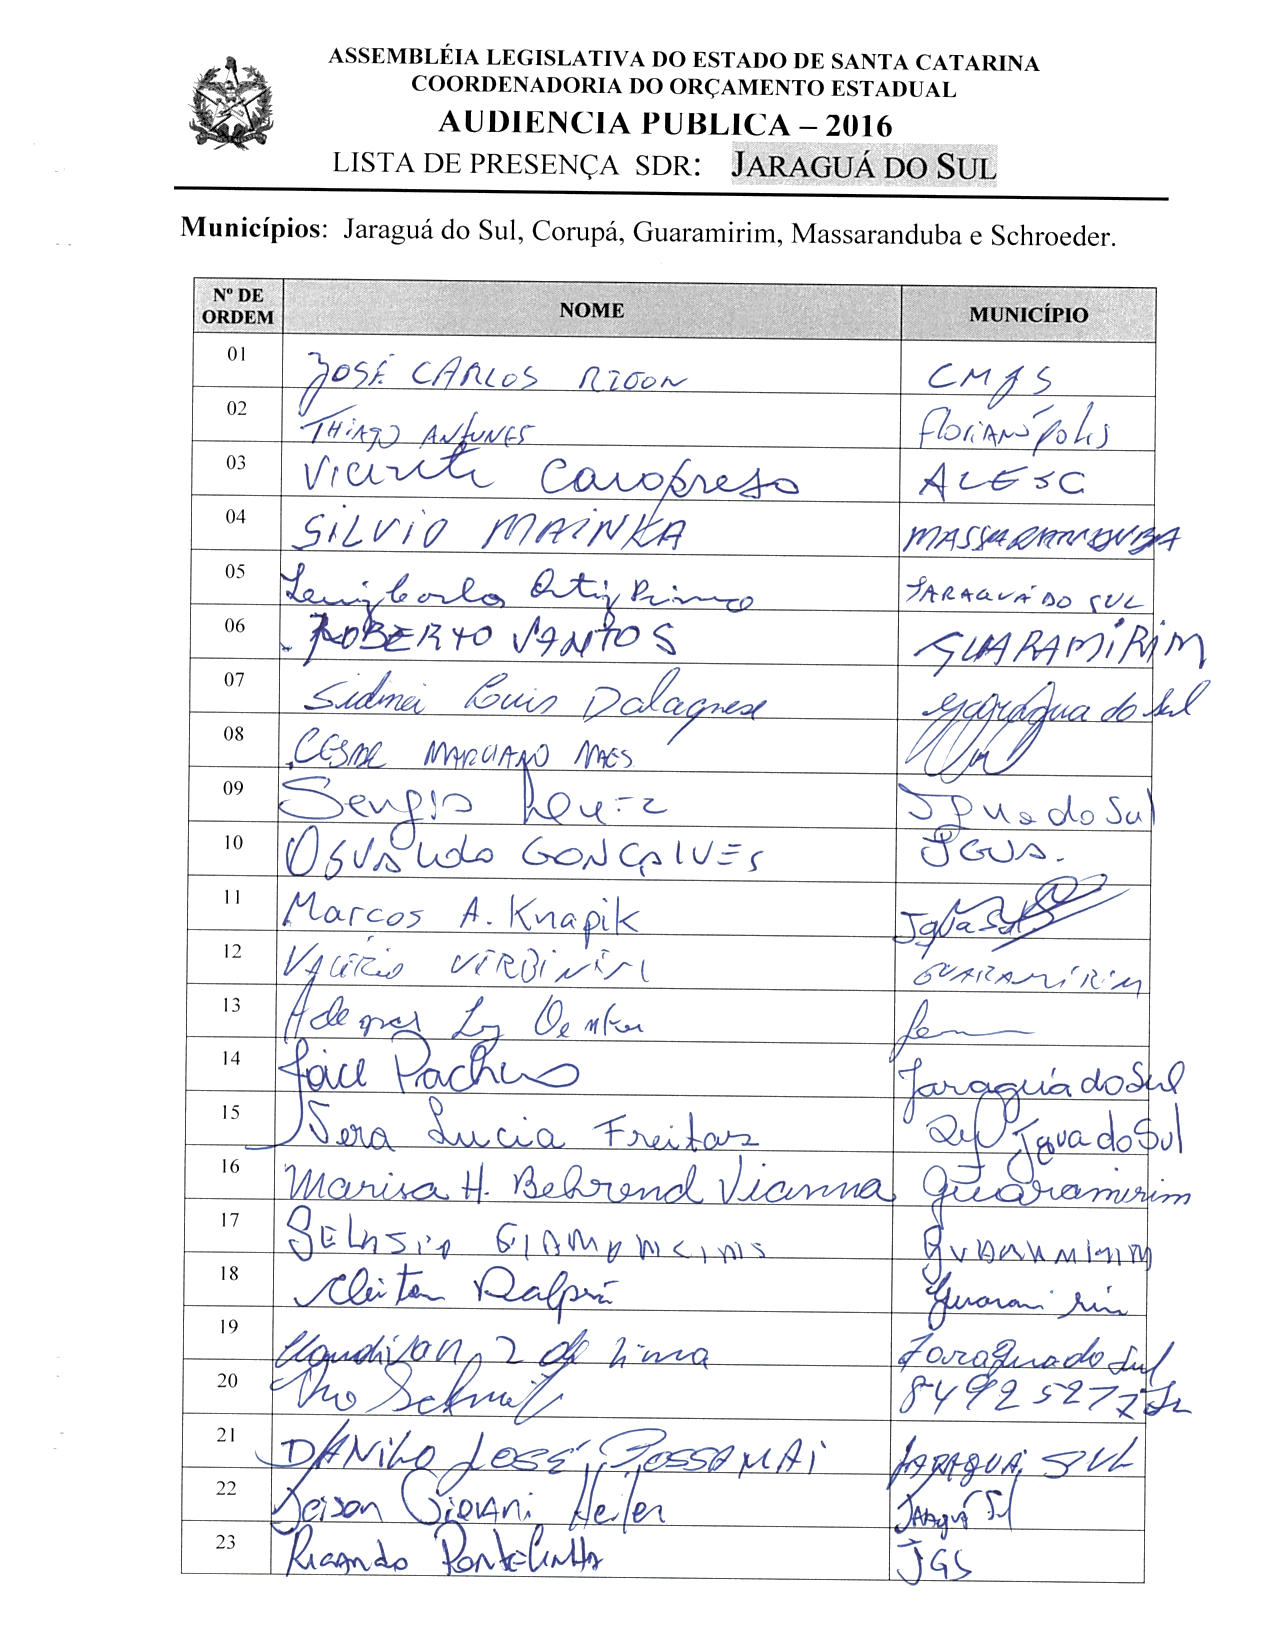 ASSEMBLÉIA LEGISLATIVA DO ESTADO DE SANTA CATARINA
COORDENADORIA DO ORÇAMENTO ESTADUAL
AUDIENCIA PUBLICA – 2016
LISTA DE PRESENÇA SDR: JARAGUÁ DO SUL
Municípios: Jaraguá do Sul, Corupá, Guaramirim, Massaranduba e Schroeder.
Nº DE ORDEM NOME MUNICÍPIO
01 JOSÉ CARLOS RIGON CMJS
02 THIAGO ANTUNES Florianópolis
03 Vicente Caropreso ALESC
04 SILVIO MAINKA MASSARANDUBA
05 Ortiz Primo JARAGUÁ DO SUL
06 ROBERTO SANTOS GUARAMIRIM
07 Sidnei Luis Dalagnese Jaragua do Sul
08 CESAR MARCIANO MAES
09 Sergio JGUa do Sul
10 OSVALDO GONÇALVES JGUA.
11 Marcos A. Knapik JguaSul
12 VALÉRIO VERBINEN GUARAMIRIM
13
14 Joice Pacheco Jaraguá do Sul
15 Vera Lucia Freitas Jgua do Sul
16 Marisa H. Behrend Vianna Guaramirim
17 GELASIO GUARAMIRIM
18 Cleiton Dalprá Guaramirim
19 Claudivan 2 de Lima Jaragua do Sul
20 84925277
21 DANILO JOSÉ POSSAMAI JARAGUÁ SUL
22 Jeison Giovani Heiler Jaraguá Sul
23 Ricardo Pontelinha JGS